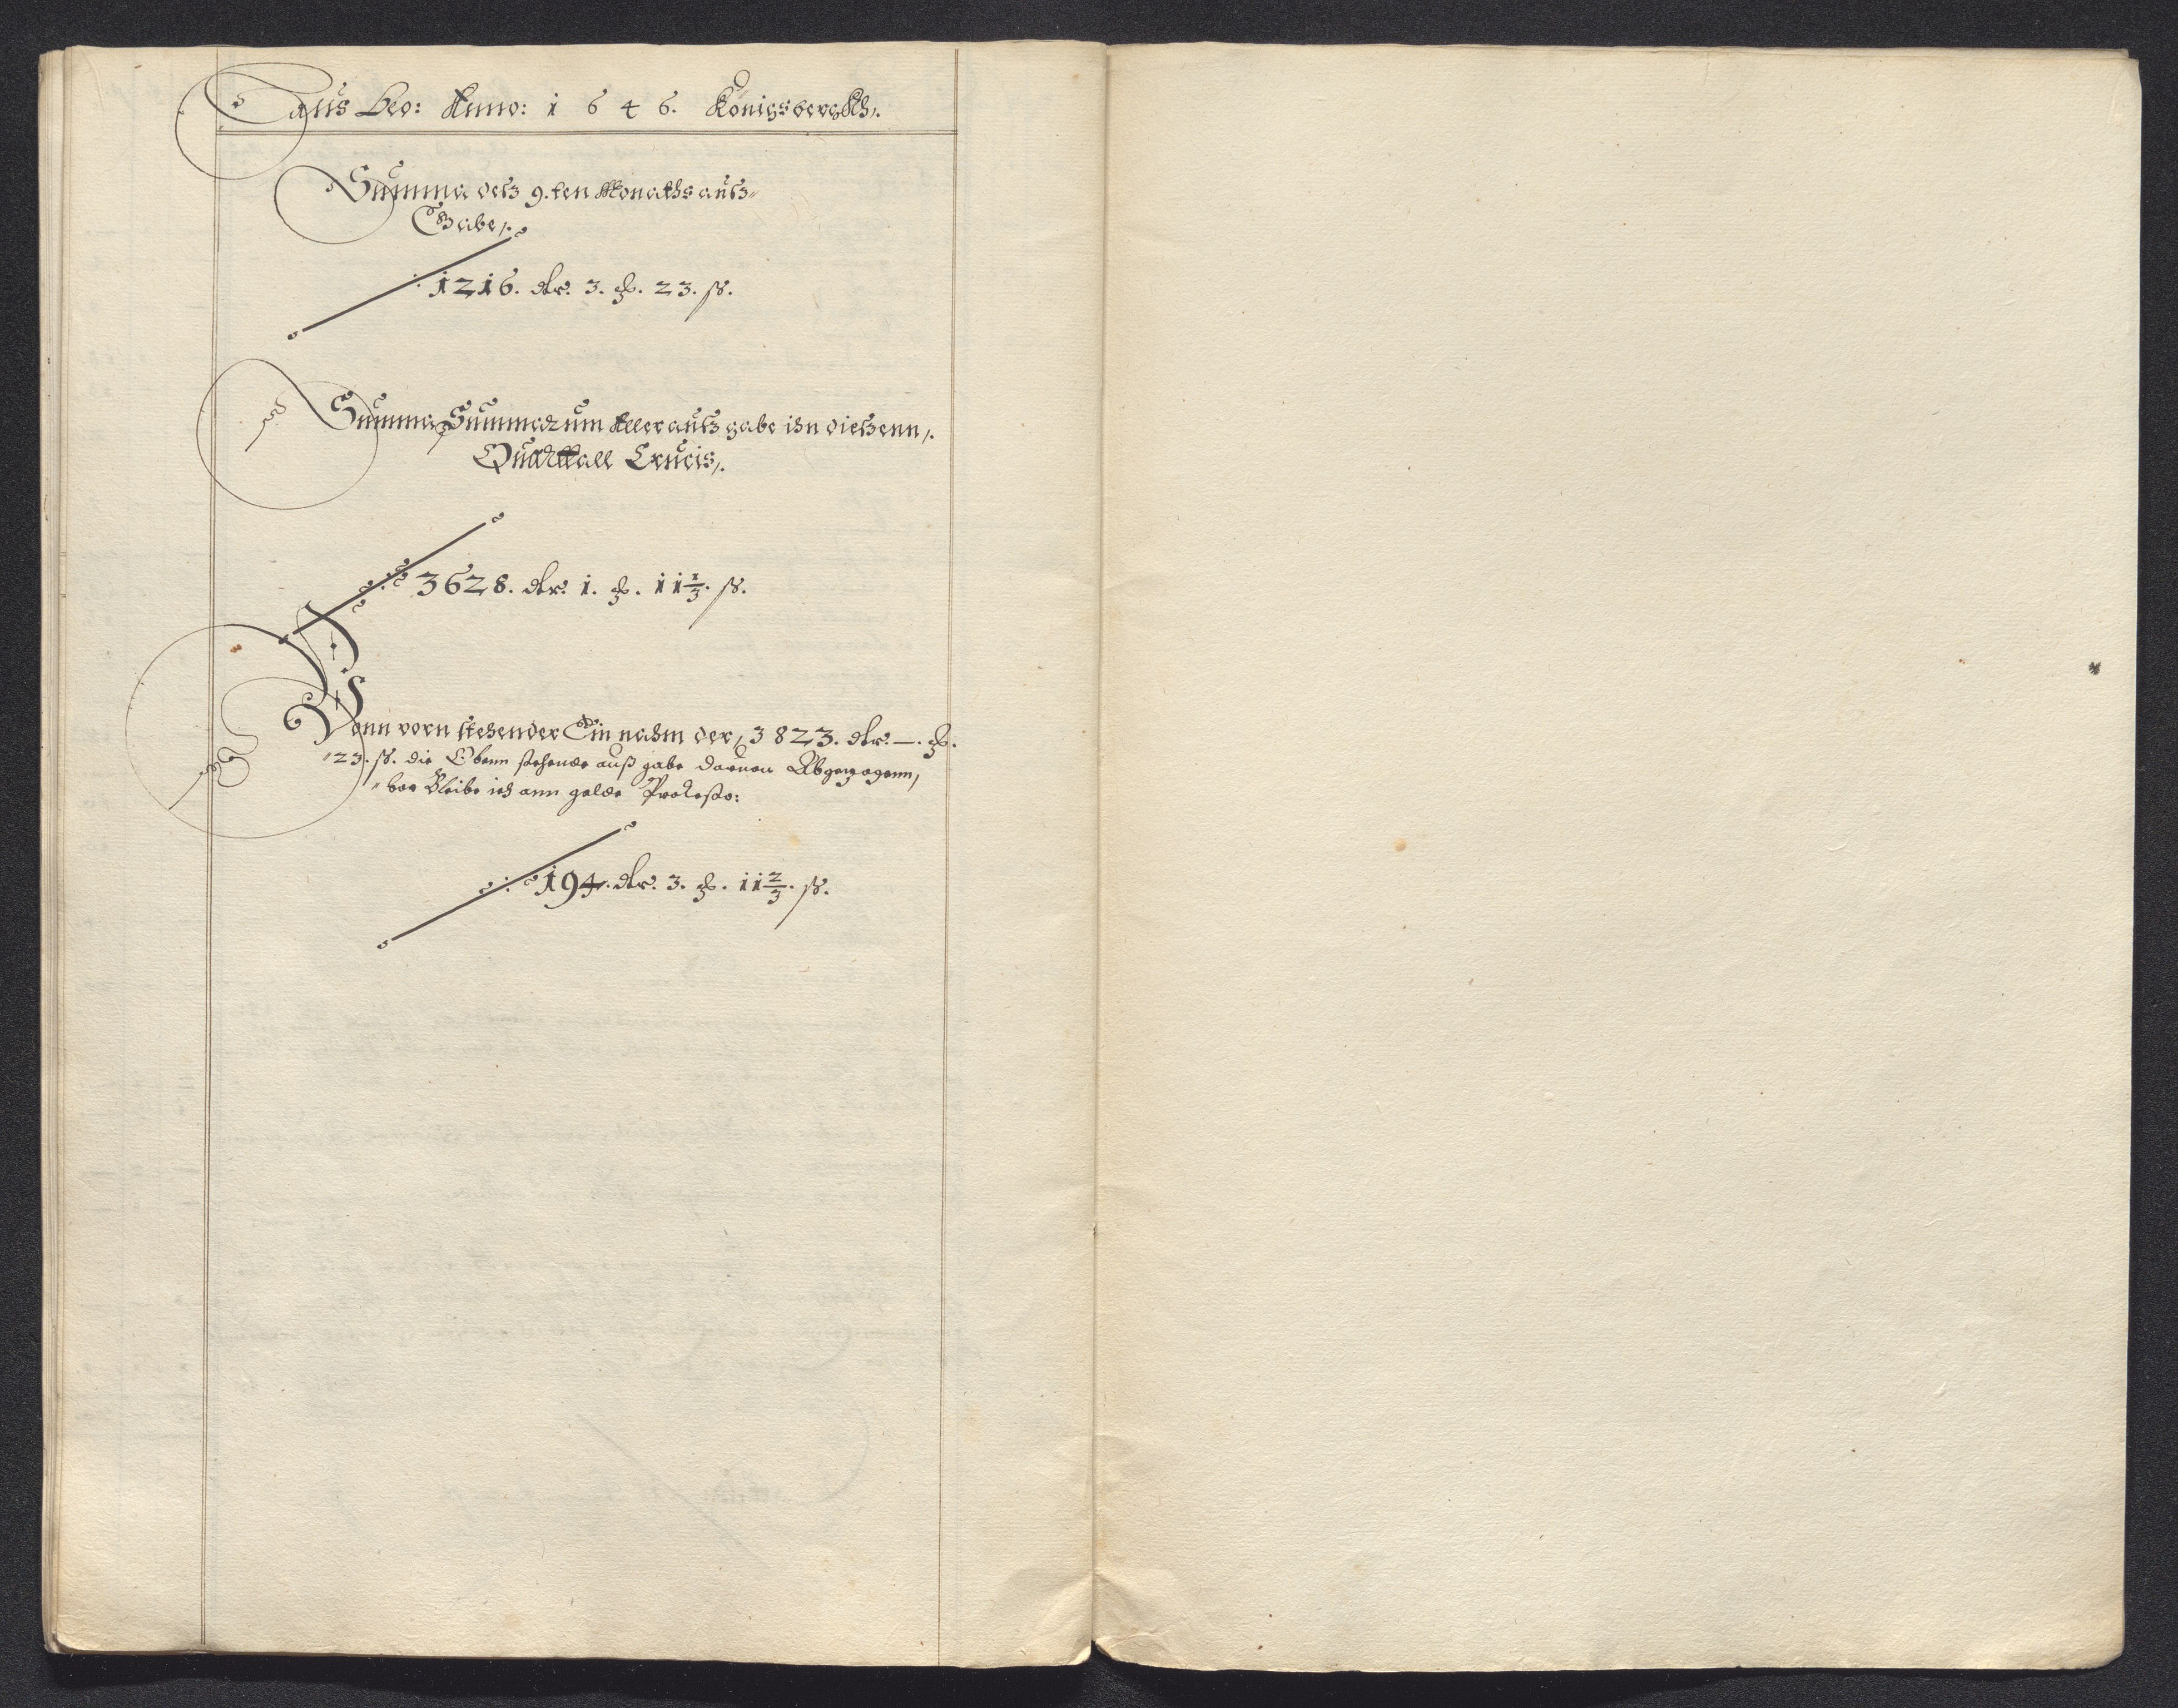 Laus Deo: Anno: 1646. Königsbergkh.
Summa desz 9.ten Monaths ausz=
Gabe.
1216. dlr. 3. ß. 23. ß.
Summa Summarum Aller ausz gabe ihn dieszenn.
Quarttall Crucis.
3628. dlr. 1. ß. 11 1/3. ß.
Vonn vorn stehender Ein nahm der, 3823. dlr. —. ß.
23. ß. die Obenn stehende auß gabe daruon Abgezogenn,
bleibe ich ann gelde Protesto:
194. dlr. 3. ß. 11 2/3. ß.